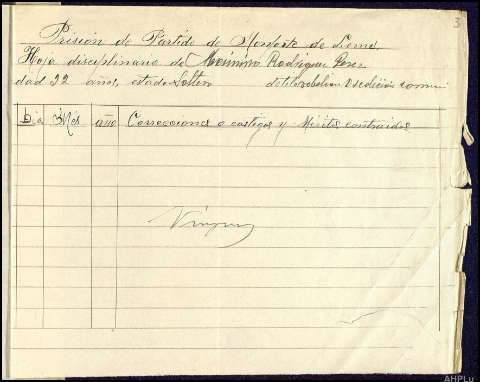 3
Prisión de Partido de Monforte de Lemos
Hoja disciplinaria de Maximino Rodriguez Perez
dad 32 años, estado Soltero delito rebelion
Dia Mes año Correcciones o castigos y Méritos contraidos
AHPLu